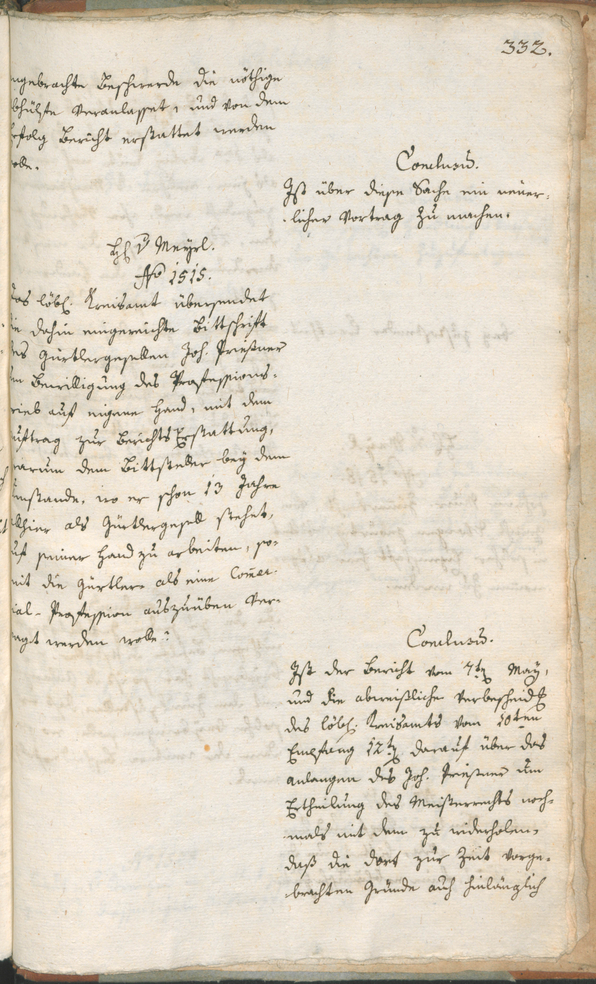 332.
ngebrachte Beschwerde die nöthige
bhülfe veranlasset, und von dem
rfolg Bericht erstattet werden
olle.
Conclusū.
Ist über diese Sache ein neuer-
licher Vortrag zu machen.
H. v Meyrl.
No 1515.
das löbl. Kreisamt übersendet
ie dahin eingereichte Bittschrift
des Gürtlergesellen Joh. Priessner
m Bewilligung des Professions-
rieb auf eigene Hand, mit dem
uftrag zur Berichts Erstattung,
warum dem Bittsteller bey dem
mstande, wo er schon 13 Jahre
llhier als Gürtlergesell stehet,
uf seiner Hand zu arbeiten, so-
mit die Gürtler- als eine Comer-
ial-Profession auszuüben ver-
agt werden wolle?
Conclusū.
Ist der Bericht vom 7ten May,
und die abweisliche Verbescheidg
des löbl. Kreisamts vom 10ten
Empfang 12ten darauf über das
Anlangen des Joh. Priessner um
Ertheilung des Meisterrechts noch-
mals mit dem zu widerholen,
daß die dort zur Zeit vorge-
brachten Gründe auch hinlänglich